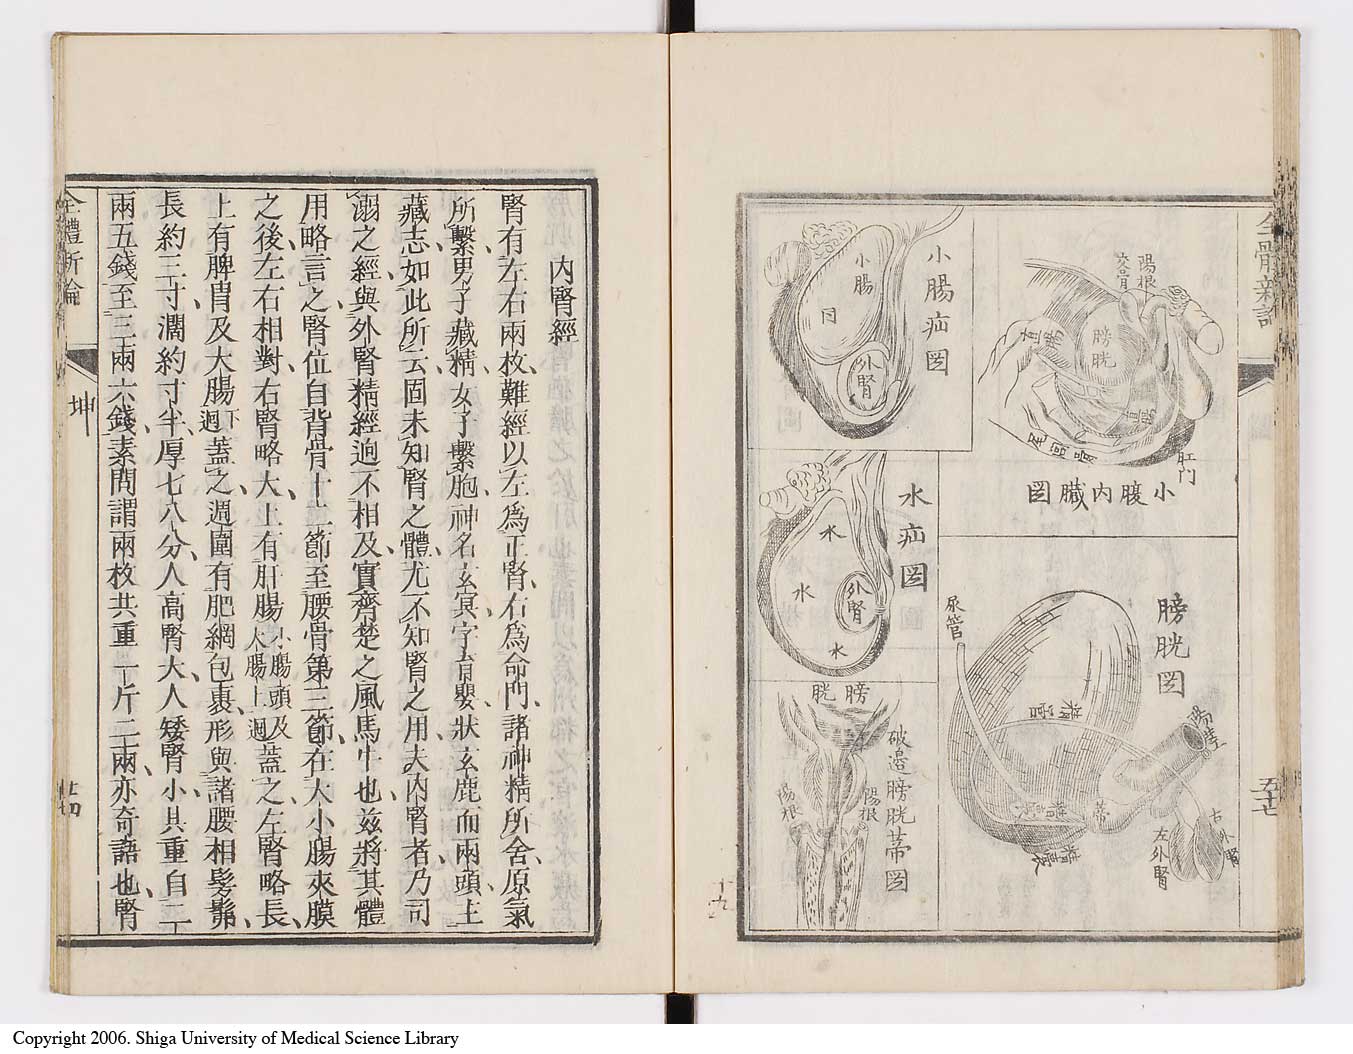 全體新論
五十七
陽根
交骨
膀胱
直腸
直腸
尾閭骨
肛門
小腹內臟図
小腸疝図
小腸
同
外腎
水疝図
水
水
外腎
水
膀胱図
尿管
精宮
陽莖
精囊
精囊
蒂
右外腎
左外腎
破邊膀胱蒂図
膀胱
陽根
陽根
十九
內腎經
腎有左右兩枚難經以左爲正腎右爲命門諸神精所舍原氣
所繫男子藏精女子繫胞神名玄冥字育嬰狀玄鹿而兩頭上
藏志如此所云固未知腎之體尤不知腎之用夫內腎者乃司
溺之經與外腎精經迥不相及實齊楚之風馬牛也茲將其體
用略言之腎位自背骨十二節至腰骨第三節在大小腸夾膜
之後左右相對右腎略大上有肝腸小腸頭及大腸上迴蓋之左腎略長
上有脾胃及大腸下迴蓋之週圍有肥網包裹形與諸腰相髣髴
長約三寸濶約寸半厚七八分人高腎大人矮腎小其重自二
兩五錢至三兩六錢素問謂兩枚共重一斤二兩亦奇語也腎
全體新論
坤
廿四